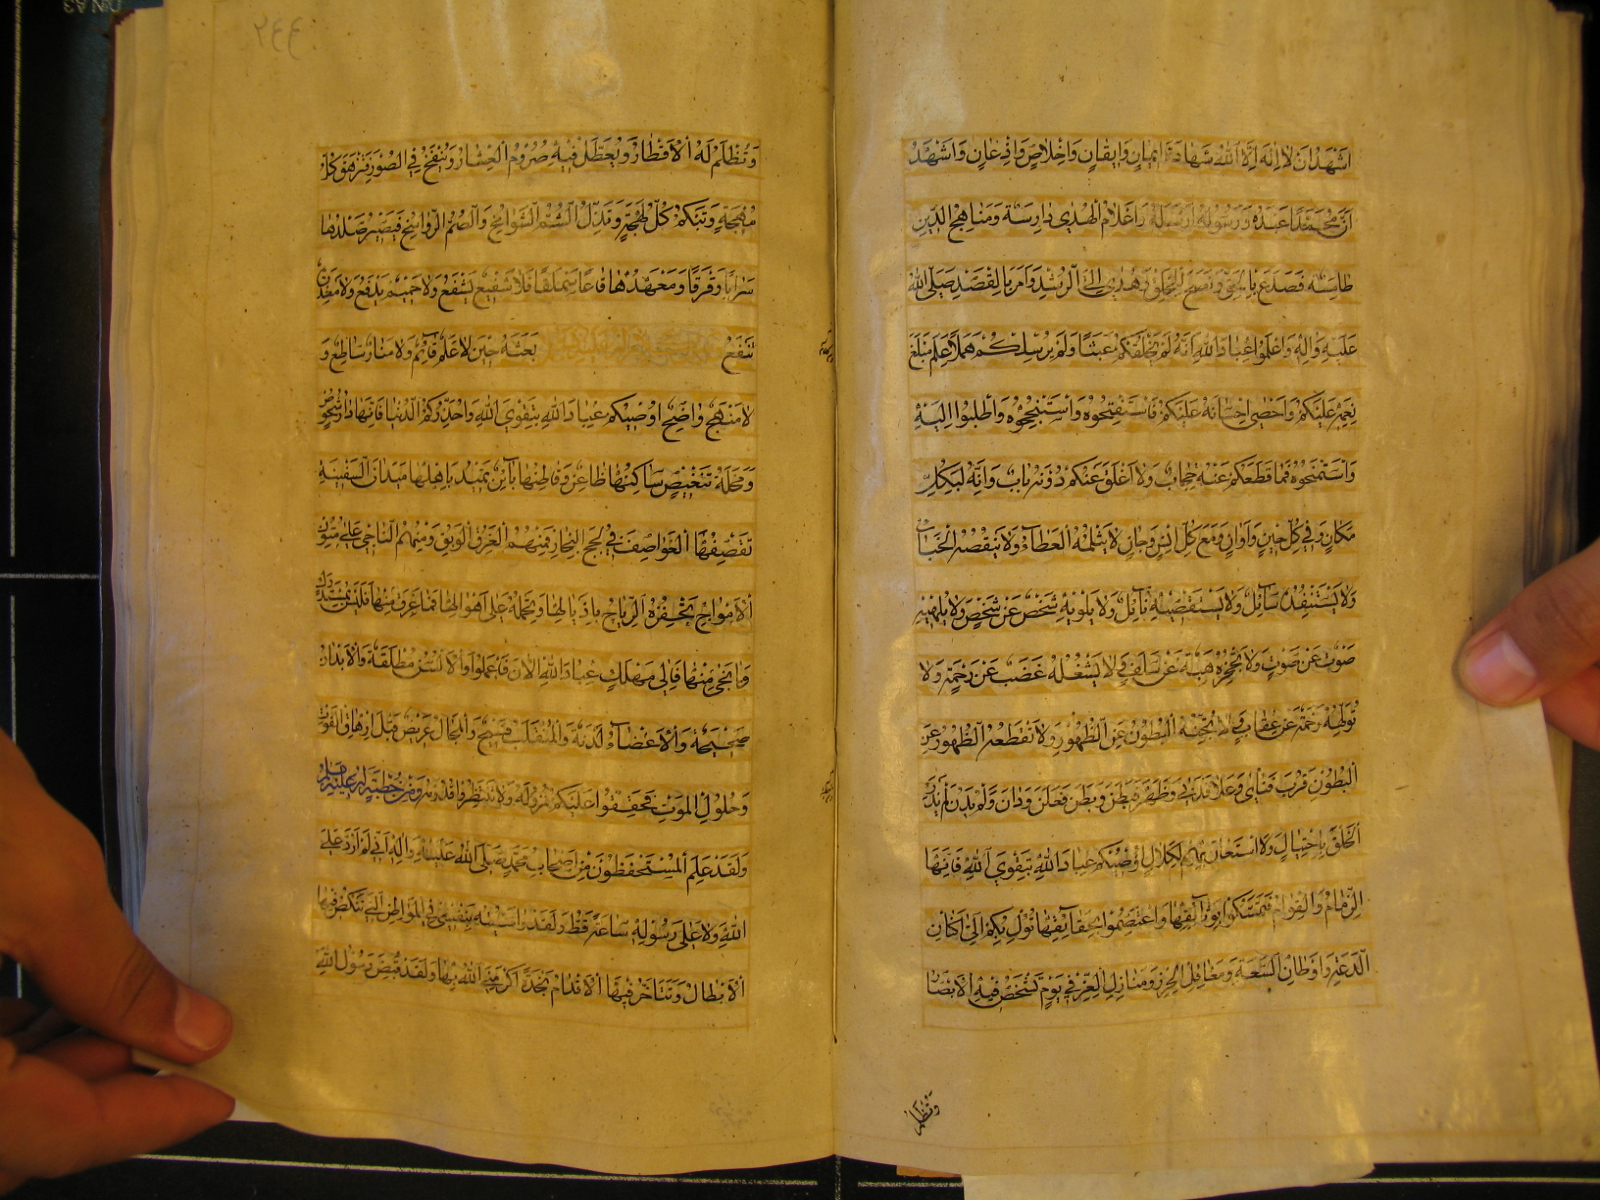 اشهد ان لا اله الا الله شهادة ايمان وايقان واخلاص واذعان واشهد
ان محمدا عبده ورسوله ارسله واعلام الهدى دارسة ومناهج الدين
طامسة فصدع بالحق ونصح للخلق وهدى الى الرشد وامر بالقصد صلى الله
عليه واله واعلموا عباد الله انه لم يخلقكم عبثا ولم يرسلكم هملا علم مبلغ
نعمه عليكم واحصى احسانه عليكم فاستفتحوه واستنجحوه واطلبوا اليه
واستمنحوه فما قطعكم عنه حجاب ولا اغلق عنكم دونه باب وانه لبكل
مكان وفي كل حين واوان ومع كل انس وجان لا يثلمه العطاء ولا ينقصه الحباء
ولا يستنفده سائل ولا يستقصيه نائل ولا يلويه شخص عن شخص ولا يلهيه
صوت عن صوت ولا تحجزه هبة عن سلب ولا يشغله غضب عن رحمة ولا
تولهه رحمة عن عقاب ولا تجنه البطون عن الظهور ولا تقطعه الظهور عن
البطون قرب فناى وعلا فدنى وظهر فبطن وبطن فعلن ودان ولم يدن لم يذرء
الخلق باحتيال ولا استعان بهم لكلال اوصيكم عباد الله بتقوى الله فانها
الزمام والقوام فتمسكوا بوثائقها واعتصموا بحقائقها تؤل بكم الى اكنان
الدعة واوطان السعة ومعاقل الحرز ومنازل العز في يوم تشخص فيه الابصار
وتظلم
٢٤٤
وتظلم له الاقطار ويعطل فيه صروم العشار وينفخ في الصور فتزهق كل
مهجة وتبكم كل لهجة وتذل الشم الشوامخ والصم الرواسخ فيصير صلدها
سرابا رقرقا ومعهدها قاعا سملقا فلا شفيع يشفع ولا حميم يدفع ولا معذرة
تنفع بعثه حين لا علم قائم ولا منار ساطع و
لا منهج واضح اوصيكم عباد الله بتقوى الله واحذركم الدنيا فانها دار شخوص
ومحلة تنغيص ساكنها ظاعن وقاطنها بائن تميد باهلها ميدان السفينة
تقصفها العواصف في لجج البحار فمنهم الغرق الوبق ومنهم الناجي على متون
الامواج تحفزه الرياح باذيالها وتحمله على اهوالها فما غرق منها فليس بمستدرك
وما نجى منها فالى مهلك عباد الله الان فاعملوا والالسن مطلقة والابدان
صحيحة والاعضاء لدنة والمنقلب فسيح والمجال عريض قبل ارهاق الفوت
وحلول الموت فحققوا عليكم نزوله ولا تنتظروا قدومه ومن خطبة له عليه السلام
ولقد علم المستحفظون من اصحاب محمد صلى الله عليه واله اني لم ارد على
الله ولا على رسوله ساعة قط ولقد واسيته بنفسي في المواطن التي تنكص فيها
الابطال وتتاخر فيها الاقدام نجدة اكرمني الله بها ولقد قبض رسول الله